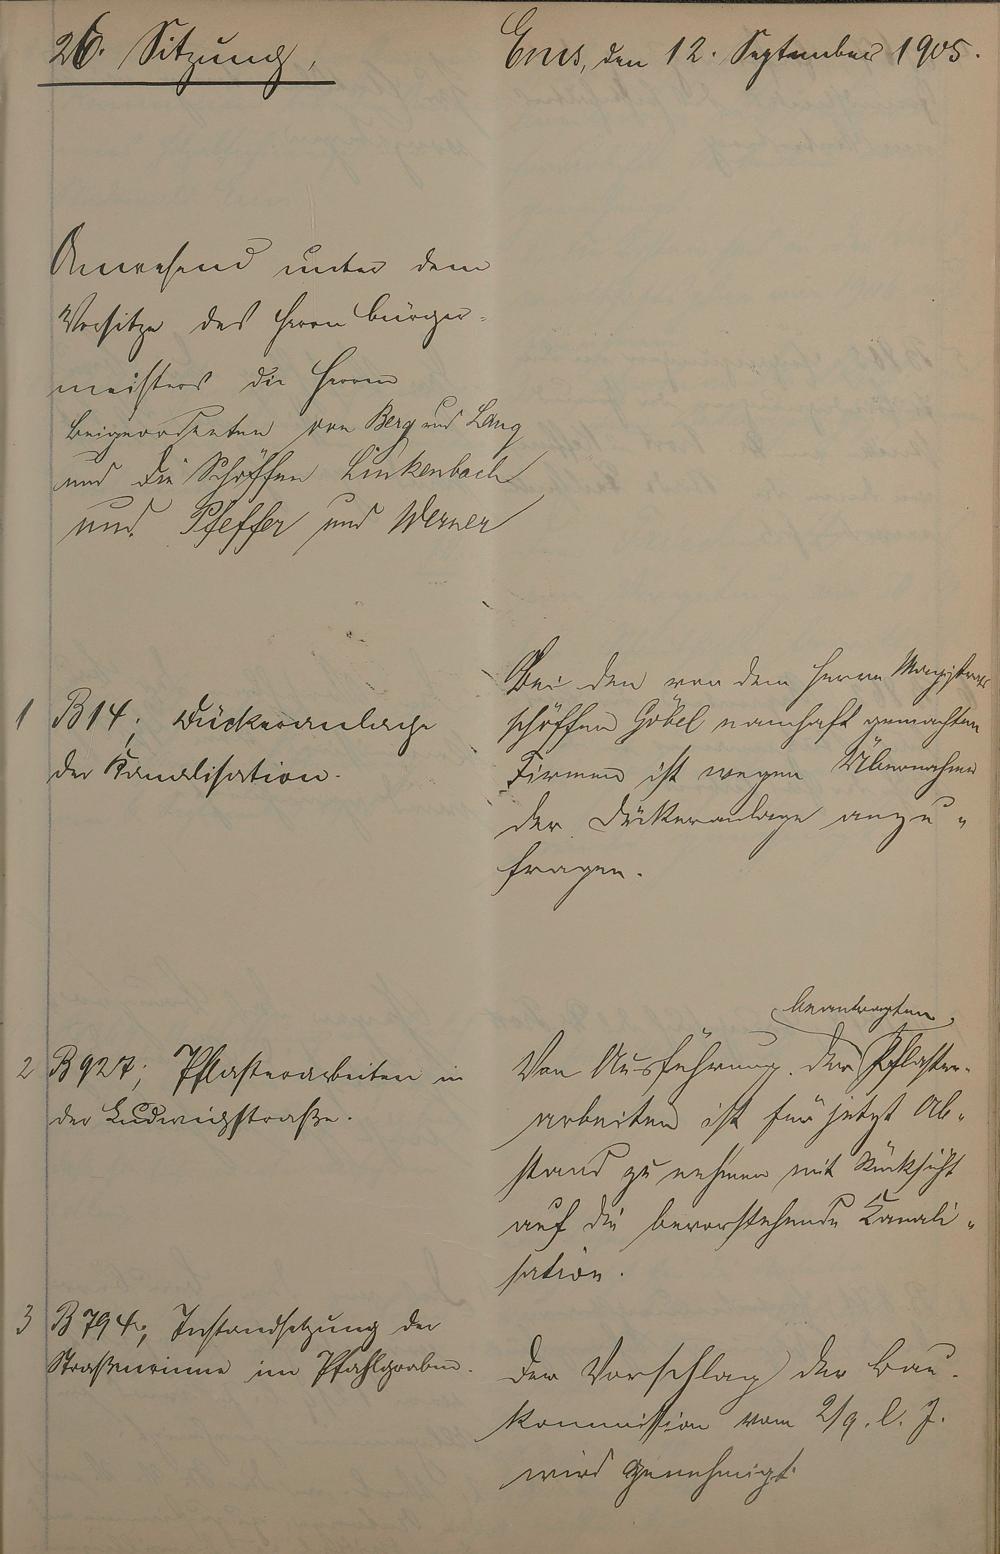 26. Sitzung,
Ems, den 12. September 1905.
Anwesend unter dem
Vorsitze des Herrn Bürger-
meisters die Herren
Beigeordneten von Berg und Lang
und die Schöffen Linkenbach
und Pfeffer und Werner
1 B 14; Dückeranlage
der Kanalisation.
Bei den von dem Herrn Magistrats
schöffen Göbel namhaft gemachten
Firmen ist wegen Übernahme
der Dückeranlage anzu-
fragen.
2 B 927; Pflasterarbeiten in
der Ludwigstraße.
beantragten
Von Ausführung der Pflaster-
arbeiten ist für jetzt Ab-
stand zu nehmen mit Rücksicht
auf die bevorstehende Kanali-
sation.
3 B 794; Instandsetzung der
Straßenrinne im Pfahlgraben.
Der Vorschlag der Bau-
kommission vom 2/9. l. J.
wird genehmigt.